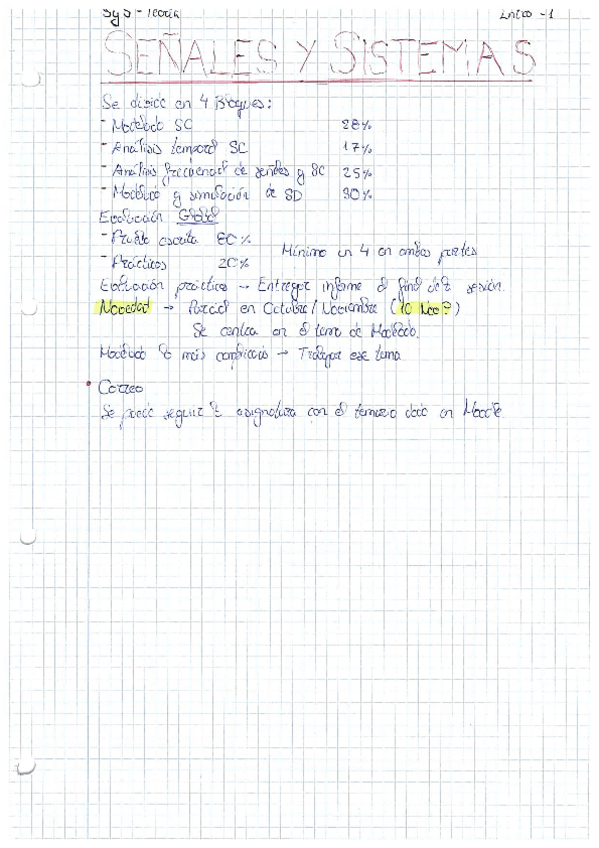 SyS - Teoría Intro - 1
SEÑALES Y SISTEMAS
Se divide en 4 Bloques:
- Modelado SC 28%
- Análisis temporal SC 17%
- Análisis frecuencial de señales y SC 25%
- Modelado y simulación de SD 30%
Evaluación Global
- Prueba escrita 80%
- Prácticas 20% Mínimo un 4 en ambas partes
Evaluación prácticas → Entregar informe al final de la sesión.
Novedad → Parcial en Octubre/Noviembre (10 Nov?)
Se centra en el tema de Modelado.
Modelado lo más complicado → Trabajar ese tema
• Correo
Se puede seguir la asignatura con el temario dado en Moodle